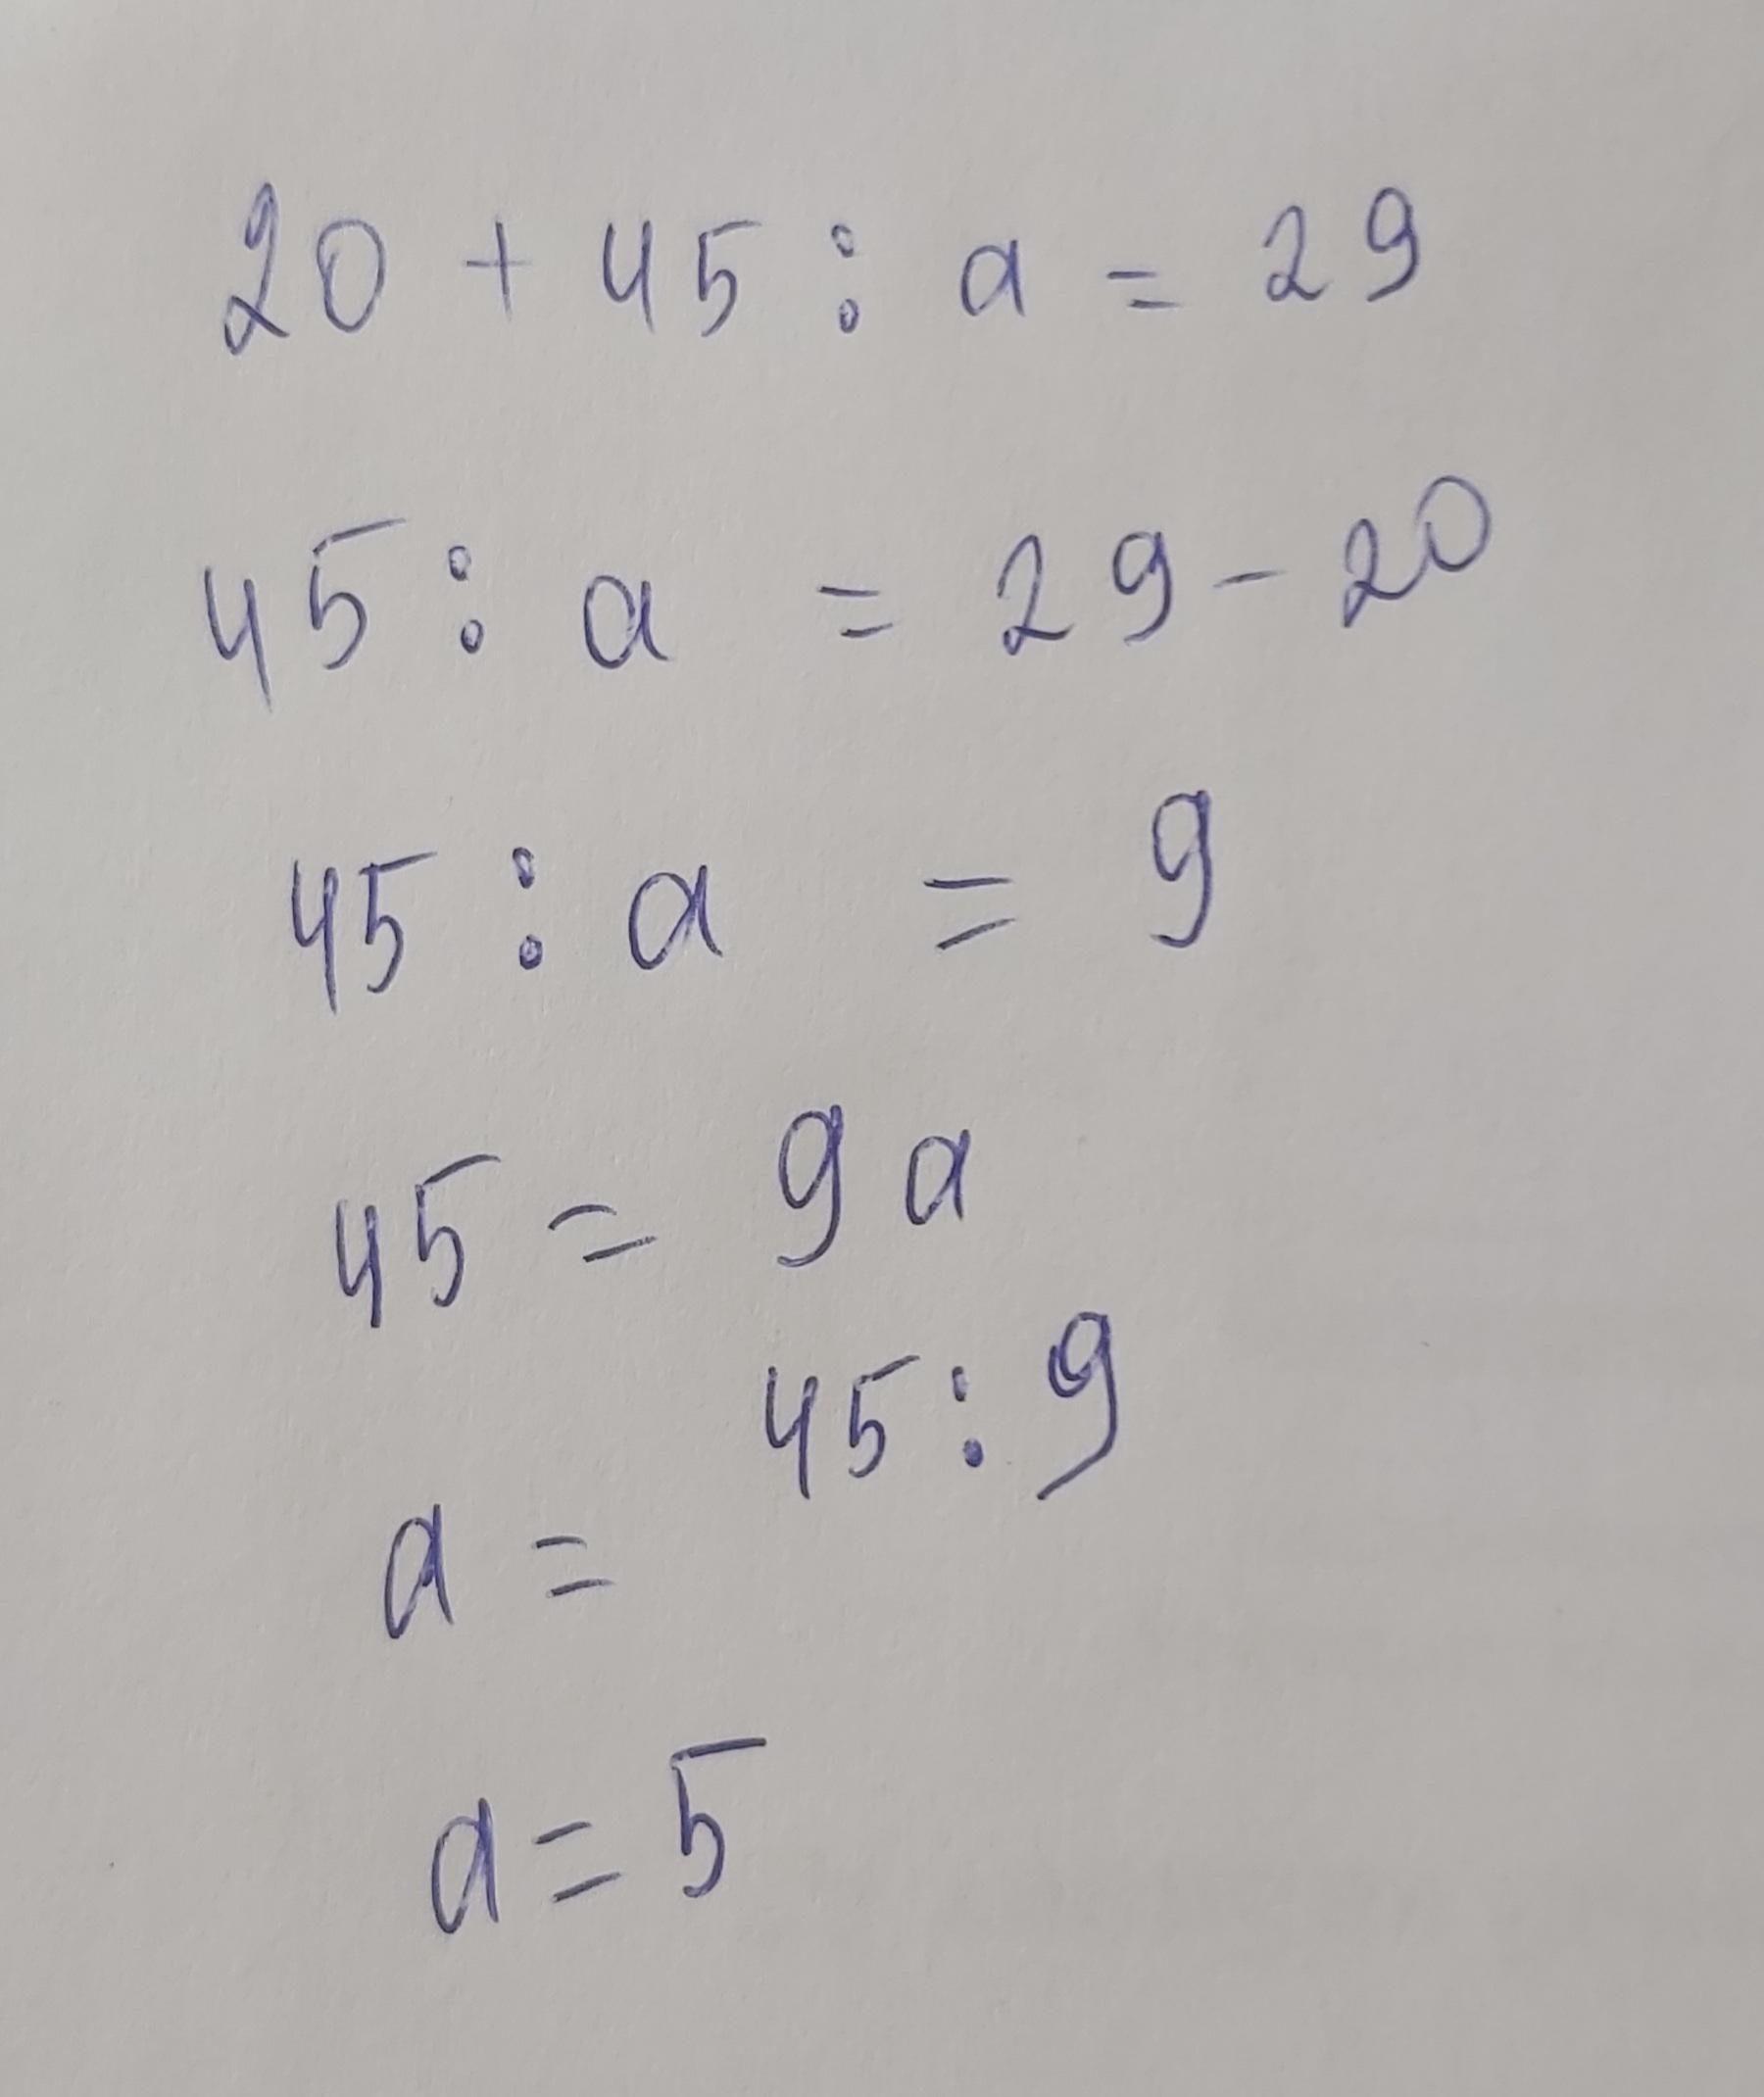 20 + 45 : a = 29
45 : a = 29 - 20
45 : a = 9
45 = 9a
a = 45 : 9
a = 5